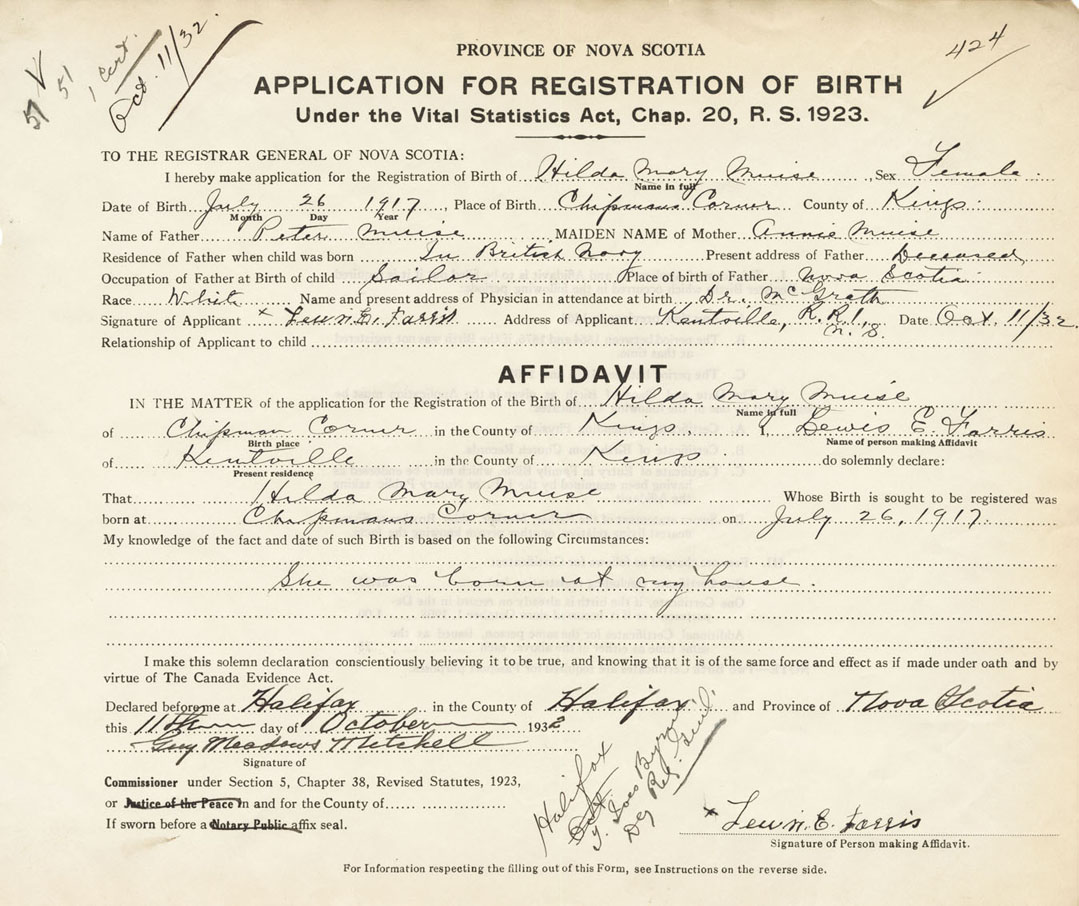 57 V 51 1 Cert. Oct. 11/32
424
PROVINCE OF NOVA SCOTIA
APPLICATION FOR REGISTRATION OF BIRTH
Under the Vital Statistics Act, Chap. 20, R. S. 1923.
TO THE REGISTRAR GENERAL OF NOVA SCOTIA:
I hereby make application for the Registration of Birth of Hilda Mary Muise, Sex Female
Name in full
Date of Birth July 26 1917, Place of Birth Chipmans Corner County of Kings
Month Day Year
Name of Father Peter Muise MAIDEN NAME of Mother Annie Muise
Residence of Father when child was born In British Navy Present address of Father Deceased
Occupation of Father at Birth of child Sailor Place of birth of Father Nova Scotia
Race White Name and present address of Physician in attendance at birth Dr. McGrath
Signature of Applicant x Lewis E. Farris Address of Applicant Kentville, R.R.1, N.S. Date Oct. 11/32
Relationship of Applicant to child
AFFIDAVIT
IN THE MATTER of the application for the Registration of the Birth of Hilda Mary Muise
Name in full
of Chipman Corner in the County of Kings I, Lewis E. Farris
Birth place Name of person making Affidavit
of Kentville in the County of Kings do solemnly declare:
Present residence
That Hilda Mary Muise Whose Birth is sought to be registered was
born at Chipmans Corner on July 26, 1917.
My knowledge of the fact and date of such Birth is based on the following Circumstances:
She was born at my house.
I make this solemn declaration conscientiously believing it to be true, and knowing that it is of the same force and effect as if made under oath and by
virtue of The Canada Evidence Act.
Declared before me at Halifax in the County of Halifax and Province of Nova Scotia
this 11th day of October 1932
Guy Meadows Mitchell
Signature of
Commissioner under Section 5, Chapter 38, Revised Statutes, 1923,
or Justice of the Peace in and for the County of
If sworn before a Notary Public affix seal.
Halifax
Dy Reg. Genl.
x Lewis E. Farris
Signature of Person making Affidavit.
For Information respecting the filling out of this Form, see Instructions on the reverse side.